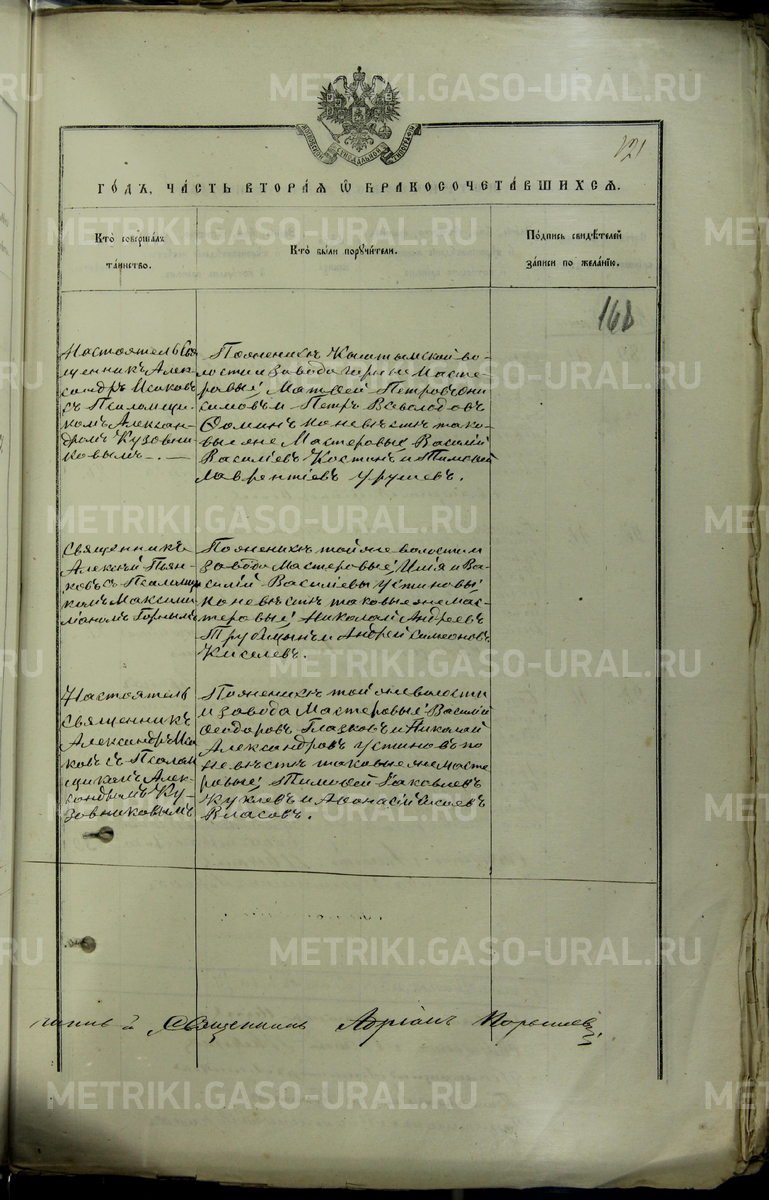 121
МОСКОВСКОЙ СѴНОДАЛЬНОЙ ТИПОГРАФІИ
ГО́ДЪ, ЧА́СТЬ ВТОРА́Я Ѽ БРАКОСОЧЕТА́ВШИХСЯ.
Кто̀ соверша́лъ та́инство.
Кто̀ бы́ли поручи́тели.
По́дпись свидѣ́телей за́писи по жела́нїю.
168
Настоятель Свя-
щенникъ Алек-
сандръ Исаковъ
съ Псаломщи-
комъ Алексан-
дромъ Кузовни-
ковымъ.
По женихѣ Кыштымской во-
лости и завода
Масте-
ровые: Матвей Петровъ Они-
симовъ и Петръ Всеволодовъ
Ѳоминъ, по невѣстѣ тако-
вые же Мастеровые Василій
Василіевъ Костинъ и Тимофей
Лаврентіевъ
Священникъ
Алексѣй Пьян-
ковъ съ Псаломщи-
комъ Максими-
ліаномъ Горнымъ
По женихѣ той же волости и
завода Мастеровые: Илія и Ва-
силій Василіевы Устиновы;
по невѣстѣ таковые же мас-
теровые: Николай Андреевъ
Трубицынъ и Андрей Симеоновъ
Киселевъ.
Настоятель
Священникъ
Александръ Иса-
ковъ съ Псалом-
щикомъ Алек-
сандромъ Ку-
зовниковымъ
По женихѣ той же волости
и завода Мастеровые: Василій
Ѳеодоровъ Глазковъ и Николай
Александровъ Устиновъ, по
невѣстѣ таковые же масте-
ровые: Тимофей Іаковлевъ
и Аѳанасій
Власовъ.
Священникъ Адріанъ
METRIKI.GASO-URAL.RU